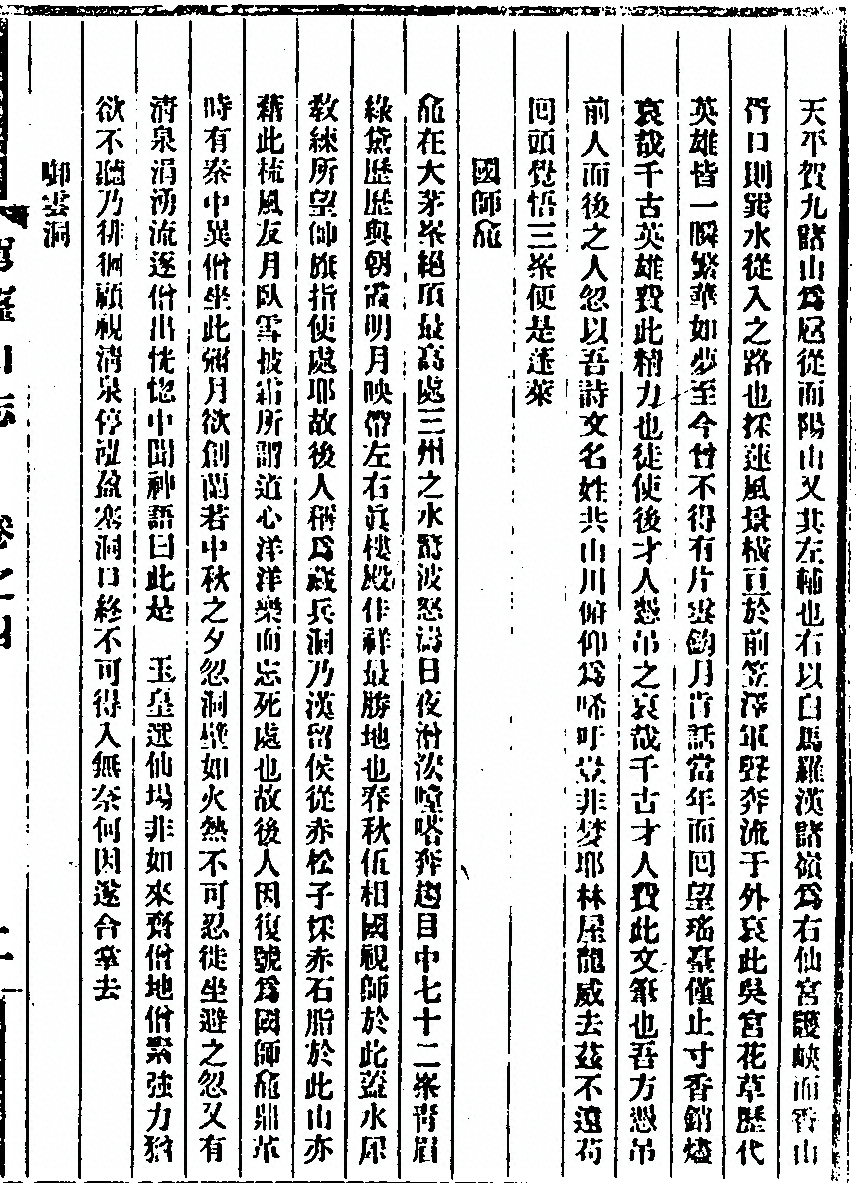 天平賀九諸山爲扈從而陽山又其左輔也右以白馬羅漢諸嶺爲右仙宮護峽而香山
胥口則巽水從入之路也採蓮風景橫亘於前笠澤軍聲奔流于外哀此吳宮花草歷代
英雄皆一瞬繁華如夢至今曾不得有片雲鉤月肯話當年而回望瑤臺僅止寸香銷燼
哀哉千古英雄費此精力也徒使後才人憑吊之哀哉千古才人費此文筆也吾方憑吊
前人而後之人忽以吾詩文名姓共山川俯仰爲唏吁豈非梦耶林屋龍威去茲不遠苟
回頭覺悟三峯便是蓬萊
國師龕
龕在大茅峯絕頂最高處三州之水驚波怒濤日夜滑汏噇嗒奔趨目中七十二峯青眉
綠黛歷歷與朝霞明月映帶左右眞樓殿作祥最勝地也春秋伍相國視師於此蓋水犀
敎練所望師旗指使處耶故後人稱爲藏兵洞乃漢留侯從赤松子採赤石脂於此山亦
藉此梳風友月臥雪披霜所謂道心洋洋樂而忘死處也故後人因復號爲國師龕鼎革
時有秦中異僧坐此彌月欲創蘭若中秋之夕忽洞壁如火熱不可忍徙坐避之忽又有
清泉涓湧流逐僧出恍惚中聞神語曰此是　玉皇選仙場非如來齋僧地僧緊強力猶
欲不聽乃徘徊顧視清泉停泓盈塞洞口終不可得入無奈何因遂合掌去
啣雲洞
山志　卷之四